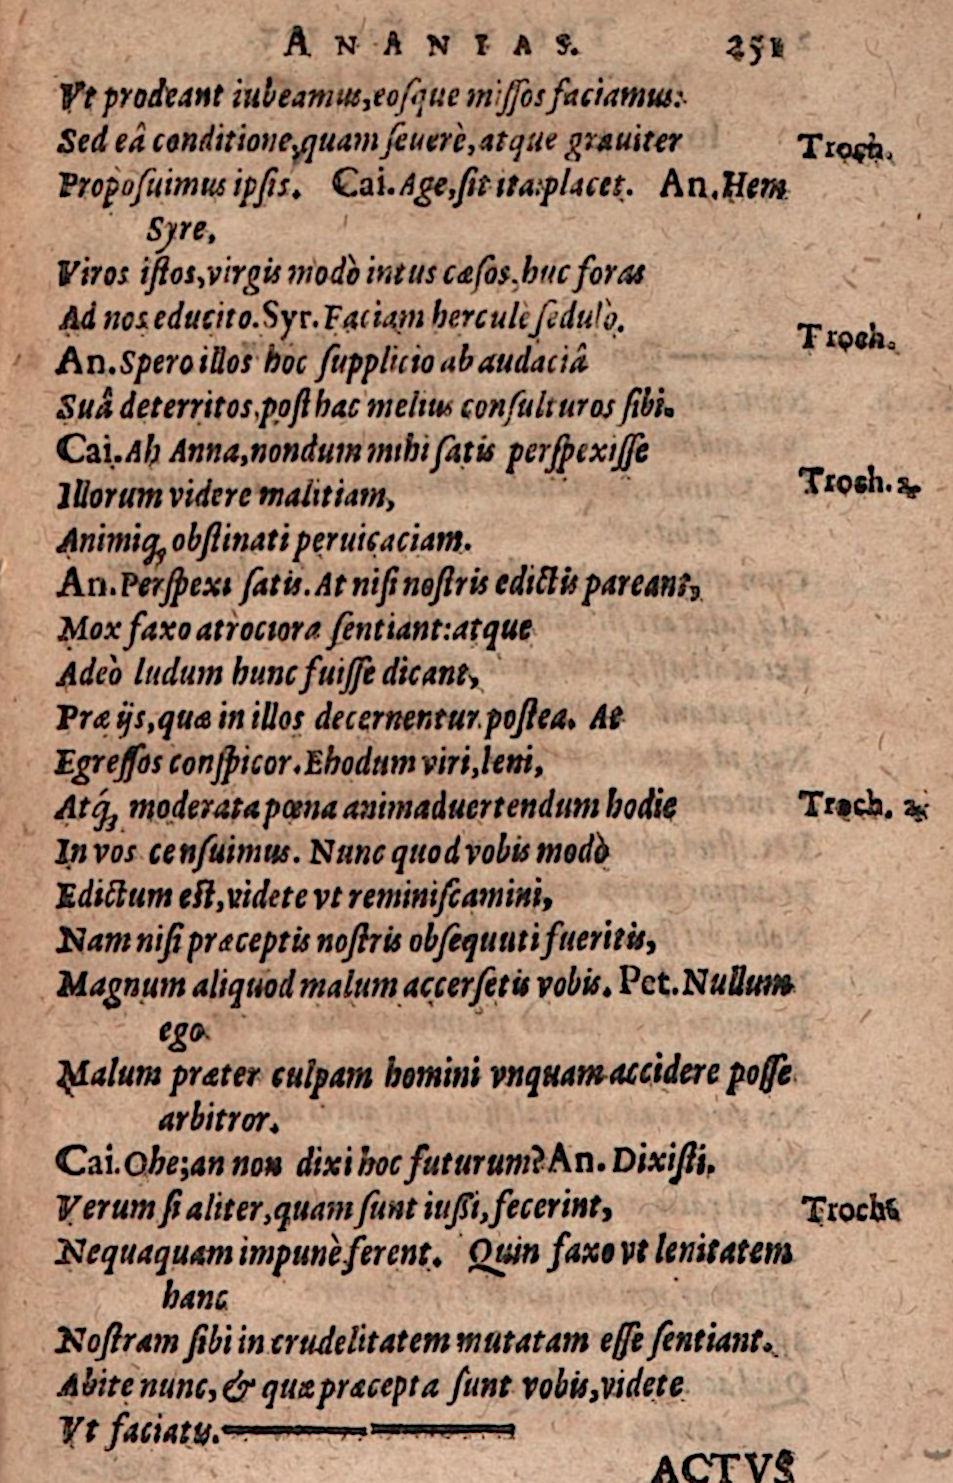 ANANIAS. 251
Vt prodeant iubeamus, eosque missos faciamus:
Sed eâ conditione, quam seuerè, atque grauiter Troch.
Proposuimus ipsis. Cai. Age, sit ita: placet. An. Hem
Syre,
Viros istos, virgis modò intus cæsos, huc foras
Ad nos educito. Syr. Faciam herculè sedulò. Troch.
An. Spero illos hoc supplicio ab audaciâ
Suâ deterritos, posthac melius consulturos sibi.
Cai. Ah Anna, nondum mihi satis perspexisse
Illorum videre malitiam, Troch. 2.
Animiq; obstinati peruicaciam.
An. Perspexi satis. At nisi nostris edictis pareant,
Mox faxo atrociora sentiant: atque
Adeò ludum hunc fuisse dicant,
Præ ijs, quæ in illos decernentur postea. At
Egressos conspicor. Ehodum viri, leni,
Atq́; moderata pœna animaduertendum hodie Troch. 2.
In vos censuimus. Nunc quod vobis modò
Edictum est, videte vt reminiscamini,
Nam nisi præceptis nostris obsequuti fueritis,
Magnum aliquod malum accersetis vobis. Pet. Nullum
ego
Malum præter culpam homini vnquam accidere posse
arbitror.
Cai. Ohe; an non dixi hoc futurum? An. Dixisti.
Verum si aliter, quam sunt iussi, fecerint, Troch.
Nequaquam impunè ferent. Quin faxo vt lenitatem
hanc
Nostram sibi in crudelitatem mutatam esse sentiant.
Abite nunc, & quæ præcepta sunt vobis, videte
Vt faciatis.
ACTVS